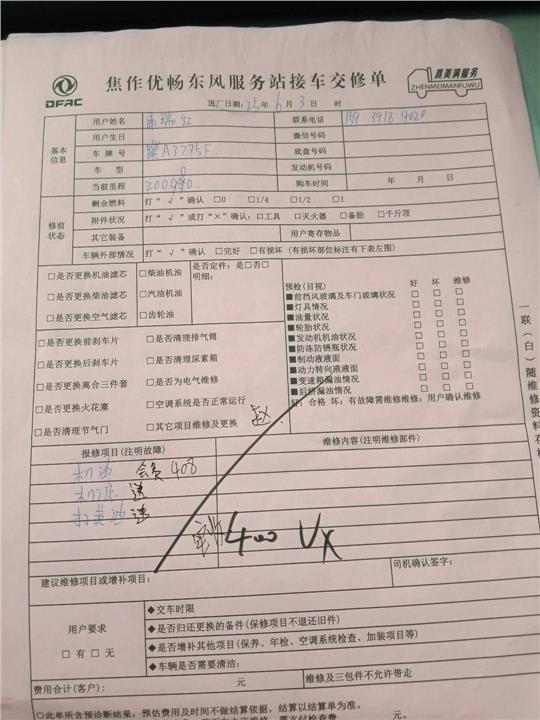 DFAC
焦作优畅东风服务站接车交修单
真美满服务
ZHENMEIMANFUWU
日期：25年6月3日 时
基本信息
用户姓名 联系电话 159 3918 4020
用户生日 微信号码
车牌号 A3775F 底盘号码
车型 发动机号码
当前里程 购车时间 年 月 日
修前状态
剩余燃料 打“√”确认 □0 □1/4 □1/2 □1
附件状况 打“√”或打“×”确认：□工具 □灭火器 □备胎 □千斤顶
其它装备 用户寄存物品
车辆外部情况 打“√”确认 □完好 □有损坏（有损坏部位标注有下表左图）
□是否更换机油滤芯 □柴油机油 是否定件：是□否□
明细：
□是否更换柴油滤芯 □汽油机油
□是否更换空气滤芯 □齿轮油
□是否更换前刹车片 □是否清理排气筒
□是否更换后刹车片 □是否清理尿素箱
□是否更换离合三件套 □是否为电气维修
□是否更换火花塞 □空调系统是否正常运行
□是否清理节气门 □其它项目维修及更换
预检(目视) 好 坏 维修
■前挡风玻璃及车门玻璃状况 □ □ □
■灯具情况 □ □ □
■油量状况 □ □ □
■轮胎状况 □ □ □
■发动机机油状况 □ □ □
■防冻防锈瓶状况 □ □ □
■制动液液面 □ □ □
■动力转向液液面 □ □ □
■变速箱漏油情况 □ □ □
■后桥漏油情况 □ □ □
好：合格 坏：有故障需维修维修：用户确认维修
一联（白）随维修资料存档
报修项目(注明故障) 维修内容(注明维修部件)
机油 会员 408
送
400 VX
建议维修项目或增补项目： 司机确认签字：
用户要求
□有 □无
◆交车时限
◆是否归还更换的备件(保修项目不退还旧件)
◆是否增补其他项目(保养、年检、空调系统检查、加装项目等)
◆车辆是否需要清洁：
费用合计(客户)： 元， 维修及三包件不允许带走
○此单所含预诊断结果，预估费用及时间不做结算依据，结算以结算单为准。 元。